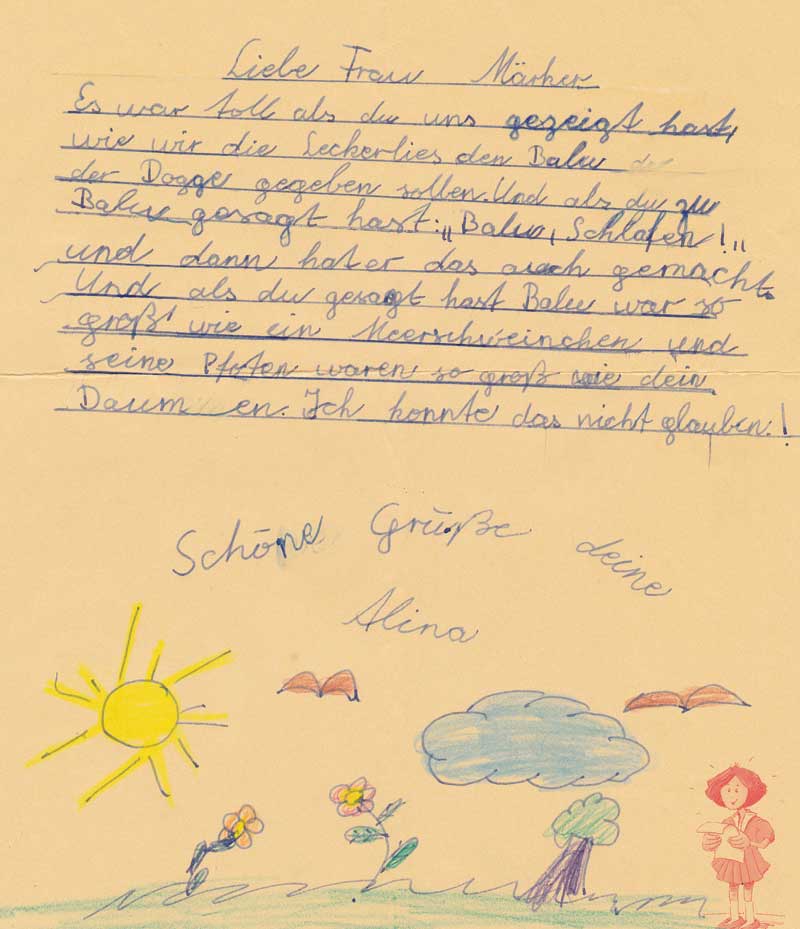 Liebe Frau Märker
Es war toll als du uns gezeigt hast,
wie wir die Leckerlies den Balu
der Dogge gegeben sollen. Und als du zu
Balu gesagt hast: „Balu, Schlafen!"
und dann hat er das auch gemacht.
Und als du gesagt hast Balu war so
groß wie ein Meerschweinchen und
seine Pfoten waren so groß wie dein
Daum en. Ich konnte das nicht glauben!
Schöne Grüße deine
Alina